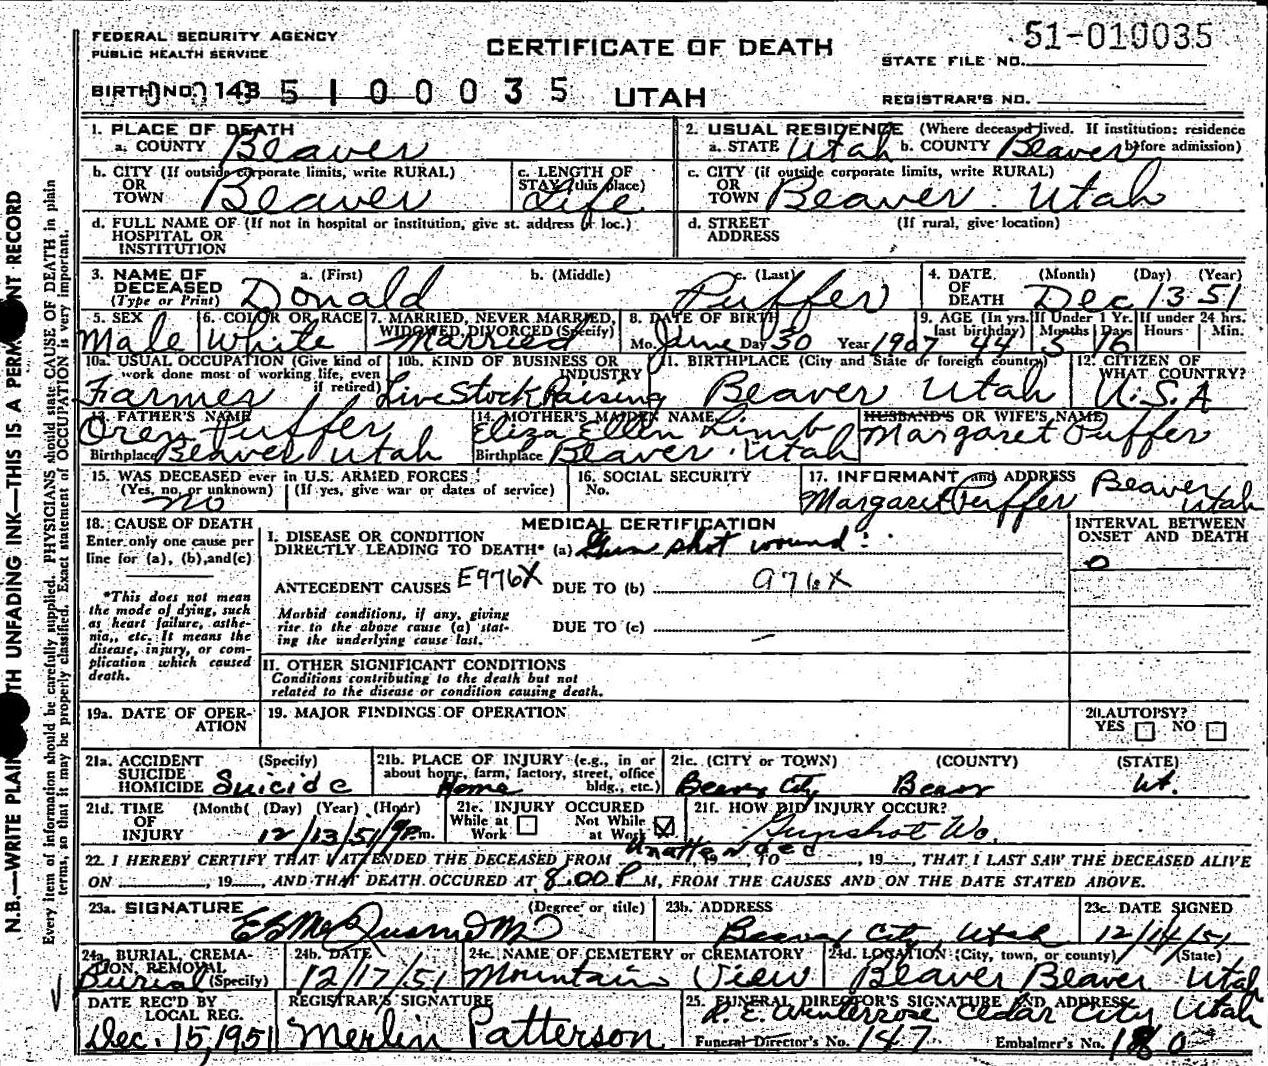 FEDERAL SECURITY AGENCY
PUBLIC HEALTH SERVICE
CERTIFICATE OF DEATH
51-010035
STATE FILE NO.
BIRTH NO. 143
5 1 0 0 0 3 5
UTAH
REGISTRAR'S NO.
1. PLACE OF DEATH
a. COUNTY Beaver
2. USUAL RESIDENCE (Where deceased lived. If institution: residence before admission)
a. STATE Utah b. COUNTY Beaver
b. CITY (If outside corporate limits, write RURAL) OR TOWN Beaver
c. LENGTH OF STAY (this place) Life
c. CITY (if outside corporate limits, write RURAL) OR TOWN Beaver Utah
d. FULL NAME OF (If not in hospital or institution, give st. address or loc.) HOSPITAL OR INSTITUTION
d. STREET ADDRESS (If rural, give location)
3. NAME OF DECEASED (Type or Print) a. (First) Donald b. (Middle) c. (Last) Puffer
4. DATE OF DEATH (Month) (Day) (Year) Dec 13 51
5. SEX Male
6. COLOR OR RACE White
7. MARRIED, NEVER MARRIED, WIDOWED, DIVORCED (Specify) Married
8. DATE OF BIRTH Mo. June Day 30 Year 1907
9. AGE (In yrs. last birthday) 44 If Under 1 Yr. Months 5 Days 16 If under 24 hrs. Hours Min.
10a. USUAL OCCUPATION (Give kind of work done most of working life, even if retired) Farmer
10b. KIND OF BUSINESS OR INDUSTRY Live Stock Raising
11. BIRTHPLACE (City and State or foreign country) Beaver Utah
12. CITIZEN OF WHAT COUNTRY? U.S.A
13. FATHER'S NAME Puffer
Birthplace Beaver Utah
14. MOTHER'S MAIDEN NAME Eliza Ellen Limb
Birthplace Beaver Utah
HUSBAND'S OR WIFE'S NAME Margaret Puffer
15. WAS DECEASED ever in U.S. ARMED FORCES?
(Yes, no, or unknown) (If yes, give war or dates of service)
No
16. SOCIAL SECURITY No.
17. INFORMANT and ADDRESS Beaver Utah
Margaret Puffer
18. CAUSE OF DEATH
Enter only one cause per line for (a), (b), and (c)
*This does not mean the mode of dying, such as heart failure, asthenia, etc. It means the disease, injury, or complication which caused death.
MEDICAL CERTIFICATION
I. DISEASE OR CONDITION DIRECTLY LEADING TO DEATH* (a) Gun shot wound
ANTECEDENT CAUSES E976X DUE TO (b) 976X
Morbid conditions, if any, giving rise to the above cause (a) stating the underlying cause last. DUE TO (c)
II. OTHER SIGNIFICANT CONDITIONS
Conditions contributing to the death but not related to the disease or condition causing death.
INTERVAL BETWEEN ONSET AND DEATH
0
19a. DATE OF OPERATION
19. MAJOR FINDINGS OF OPERATION
20. AUTOPSY? YES NO
21a. ACCIDENT SUICIDE HOMICIDE (Specify) Suicide
21b. PLACE OF INJURY (e.g., in or about home, farm, factory, street, office bldg., etc.) Home
21c. (CITY or TOWN) (COUNTY) (STATE)
Beaver City Beaver Ut.
21d. TIME OF INJURY (Month) (Day) (Year) (Hour) 12/13/51 m.
21e. INJURY OCCURED While at Work Not While at Work
21f. HOW DID INJURY OCCUR? Gunshot Wo.
Unattended
22. I HEREBY CERTIFY THAT I ATTENDED THE DECEASED FROM , TO , 19 , THAT I LAST SAW THE DECEASED ALIVE
ON , 19 , AND THAT DEATH OCCURED AT 8:00 P M, FROM THE CAUSES AND ON THE DATE STATED ABOVE.
23a. SIGNATURE (Degree or title)
23b. ADDRESS Beaver City, Utah
23c. DATE SIGNED 12/14/51
24a. BURIAL, CREMATION, REMOVAL (Specify) Burial
24b. DATE 12/17/51
24c. NAME OF CEMETERY or CREMATORY Mountain View
24d. LOCATION (City, town, or county) (State) Beaver Beaver Utah
DATE REC'D BY LOCAL REG. Dec. 15, 1951
REGISTRAR'S SIGNATURE Merlin Patterson
25. FUNERAL DIRECTOR'S SIGNATURE AND ADDRESS Cedar City Utah
Funeral Director's No. 147 Embalmer's No.
N.B.—WRITE PLAINLY WITH UNFADING INK—THIS IS A PERMANENT RECORD
Every item of information should be carefully supplied. PHYSICIANS should state CAUSE OF DEATH in plain terms, so that it may be properly classified. Exact statement of OCCUPATION is very important.